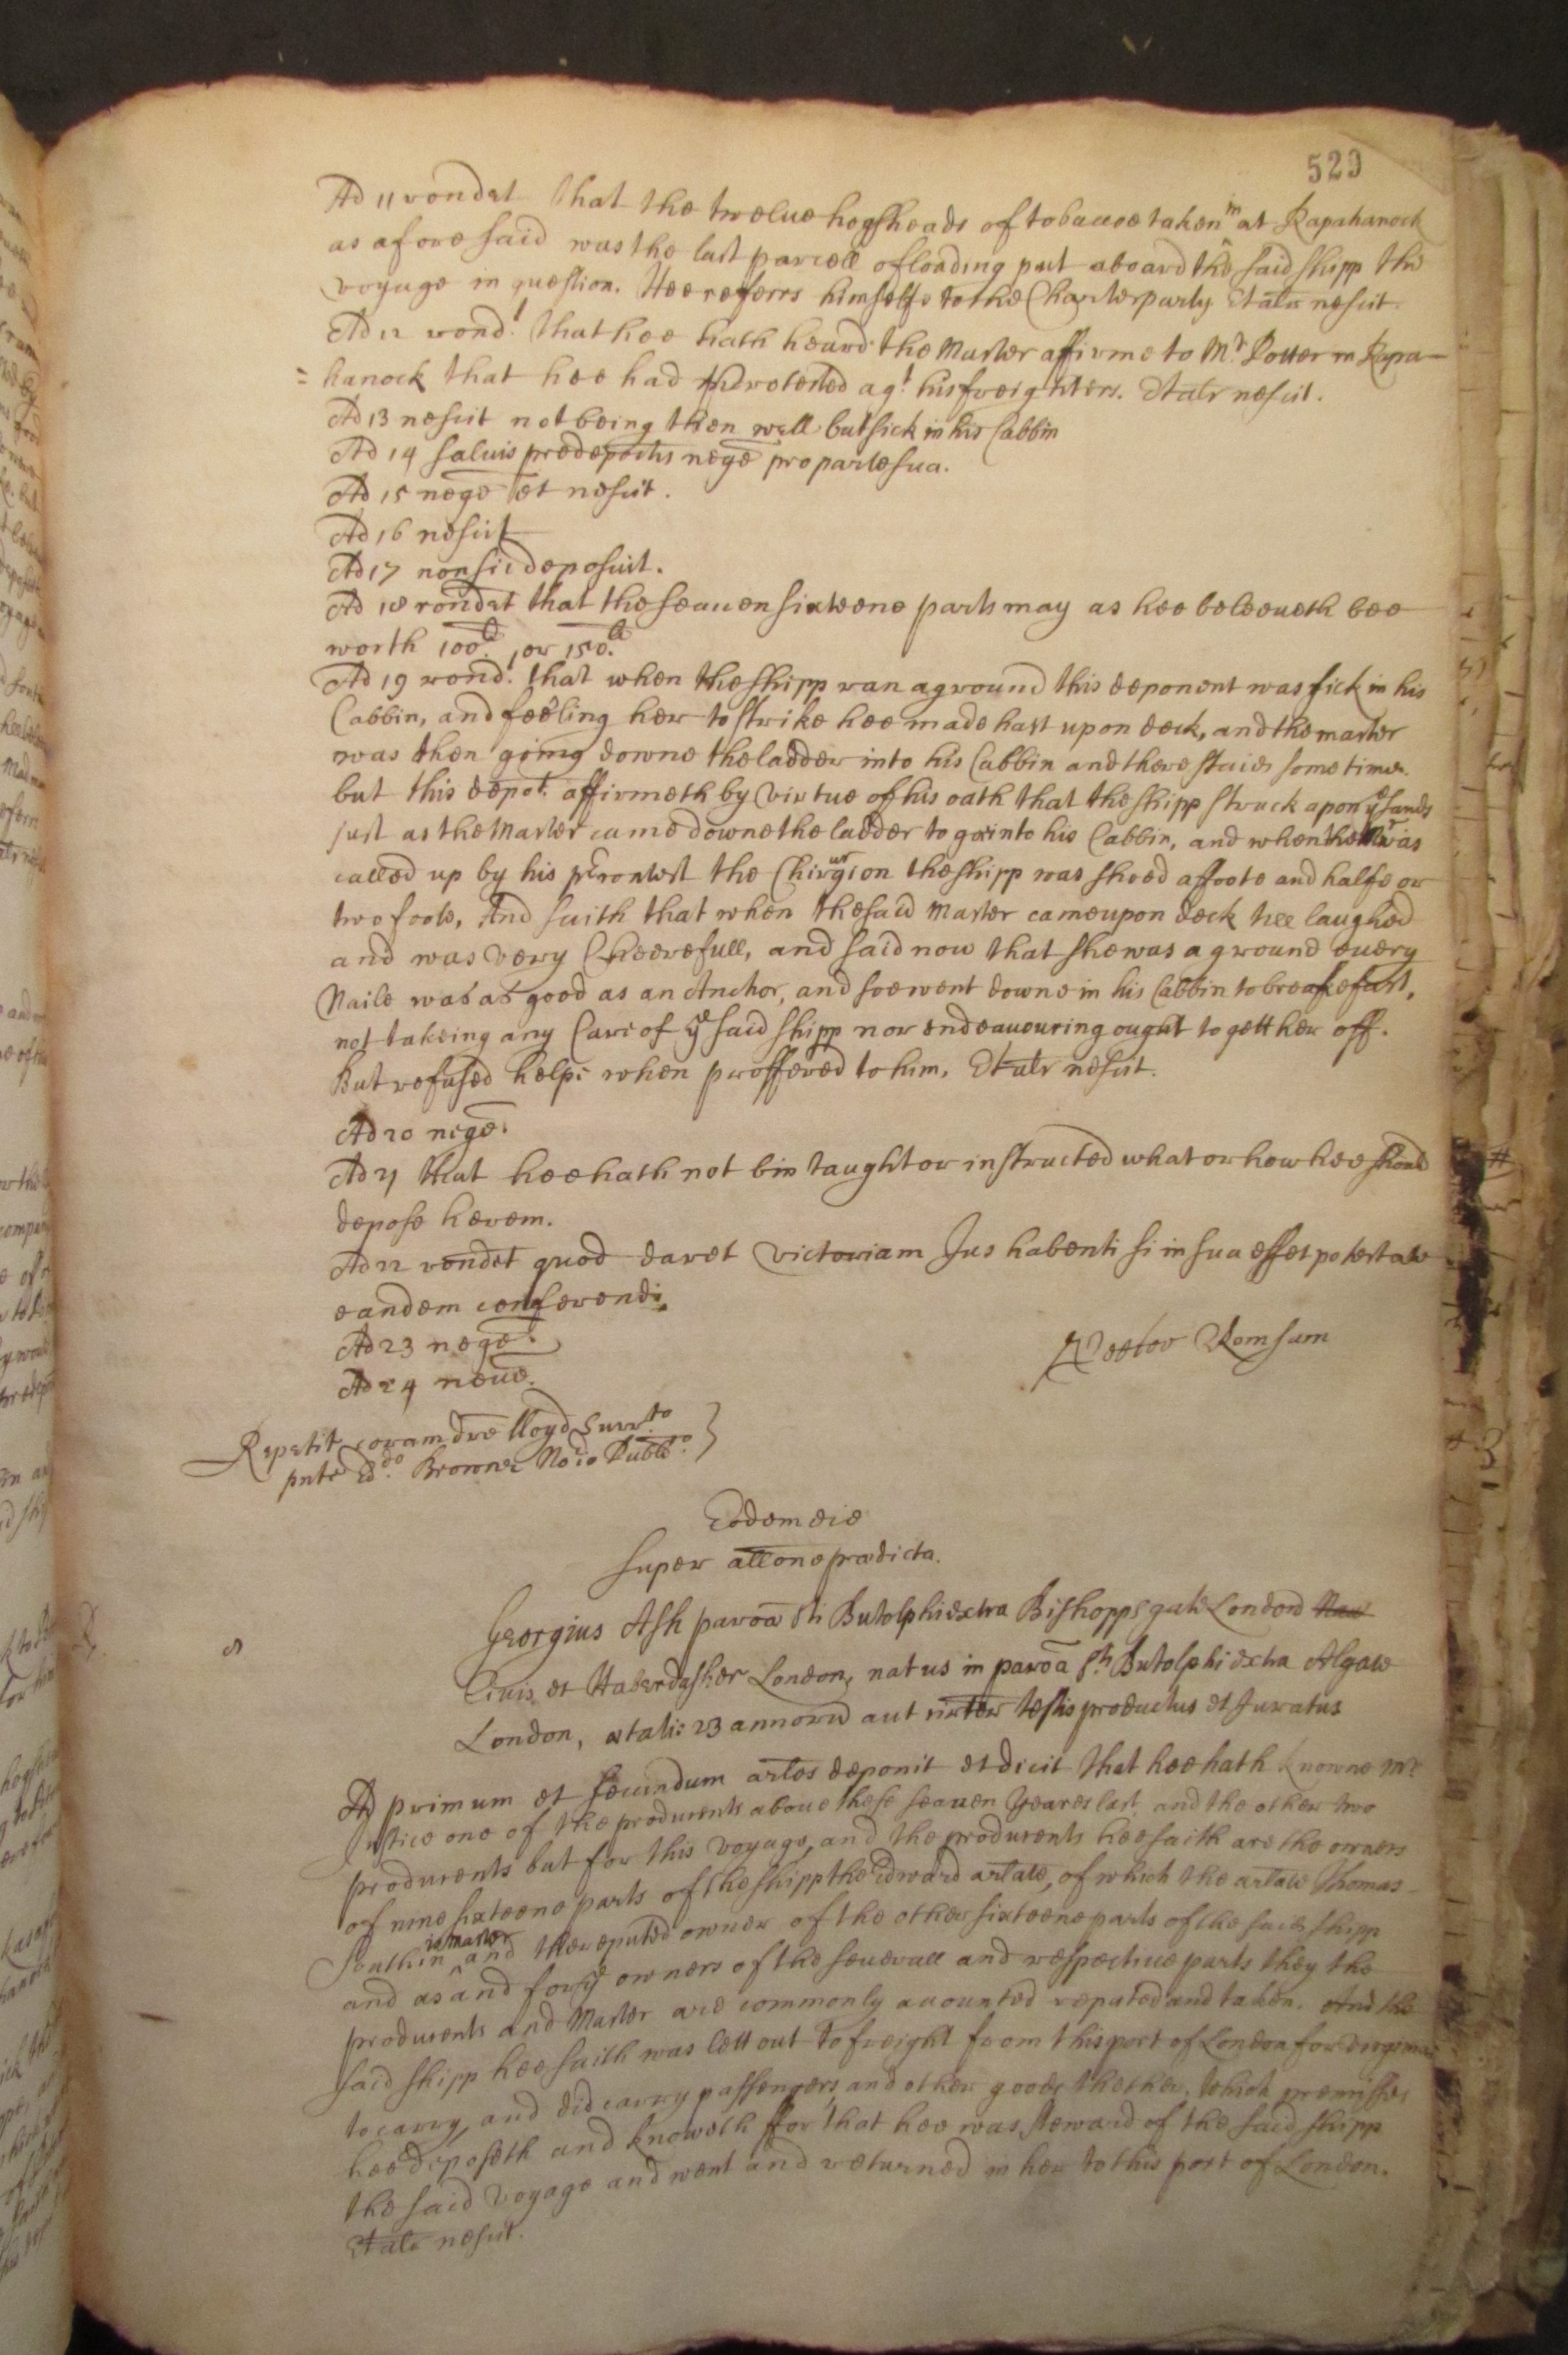 529
Ad 11 rondet that the twelve hogsheads of tobaccoe taken in at Rapahanock
as aforesaid was the last parcell of loading put aboard the said shipp the
voyage in question. Hee referrs himselfe to the Charterparty Et alr nescit.
Ad 12 rond.t that hee hath heard the Master affirme to Mr. Potter in Rapa-
=hanock that hee had protested agt. his freighters. Et alr nescit.
Ad 13 nescit not being then well but sick in his Cabbin
Ad 14 salvis prædepositis negē pro parte sua.
Ad 15 negē et nescit.
Ad 16 nescit
Ad 17 non sic deposuit.
Ad 18 rondet that the seauen sixteene parts may as hee beleeueth bee
worth 100li. or 150.li
Ad 19 rond.t that when the shipp ran aground this deponent was sick in his
Cabbin, and feeling her to strike hee made hast upon deck, and the master
was then going downe the ladder into his Cabbin and there staied some time.
but this depot. affirmeth by virtue of his oath that the shipp struck apon ye sands
just as the Master came downe the ladder to goe into his Cabbin, and when the Mr was
called up by his the Chirurgion the shipp was shoed a foote and halfe or
two foote, And saith that when the said Master came upon deck hee laughed
and was very Cheerefull, and said now that she was a ground euery
Naile was as good as an Anchor, and soe went downe in his Cabbin to breakefast,
not takeing any Care of ye said shipp nor endeauouring ought to gett her off.
But refused helpe when proffered to him, Et alr nescit.
Ad 20 negē.
Ad 21 that hee hath not bin taught or instructed what or how hee should
depose herein.
Ad 22 rondet quod daret victoriam Jus habenti si in sua esset potestate
eandem conferendi.
Ad 23 negē.
Ad 24 neue.
Peeter Remsam
Repetit coram dre lloyd Surrto.
pnte Eddo. Browne Norio Publco.
Eodem die
super allone prædicta.
8
Georgius Ash paroa Sti Butolphi extra Bishoppsgate London
Civis et Haberdasher London, natus in paroa Sti Butolphi extra Algate
London, ætatis 23 annoru aut circiter testis productus et Juratus
Ad primum et secundum artlos deponit et dicit that hee hath knowne Mr.
Justice one of the producents aboue these seauen yeares last and the other two
producents but for this voyage, and the producents hee saith are the owners
of nine sixteene parts of the shipp the Edward arlate, of which the arlate Thomas
Southin is Master and the reputed owner of the other sixteene parts of the said shipp
and as and for ye owners of the seuerall and respectiue parts they the
producents and Master are commonly accounted reputed and taken. And the
said shipp hee saith was lett out to freight from this port of London for
to carry, and did carry passengers and other goods thether, which premisses
hee deposeth and knoweth ffor that hee was steward of the said shipp
the said voyage and went and returned in her to this port of London.
Et alr nescit.